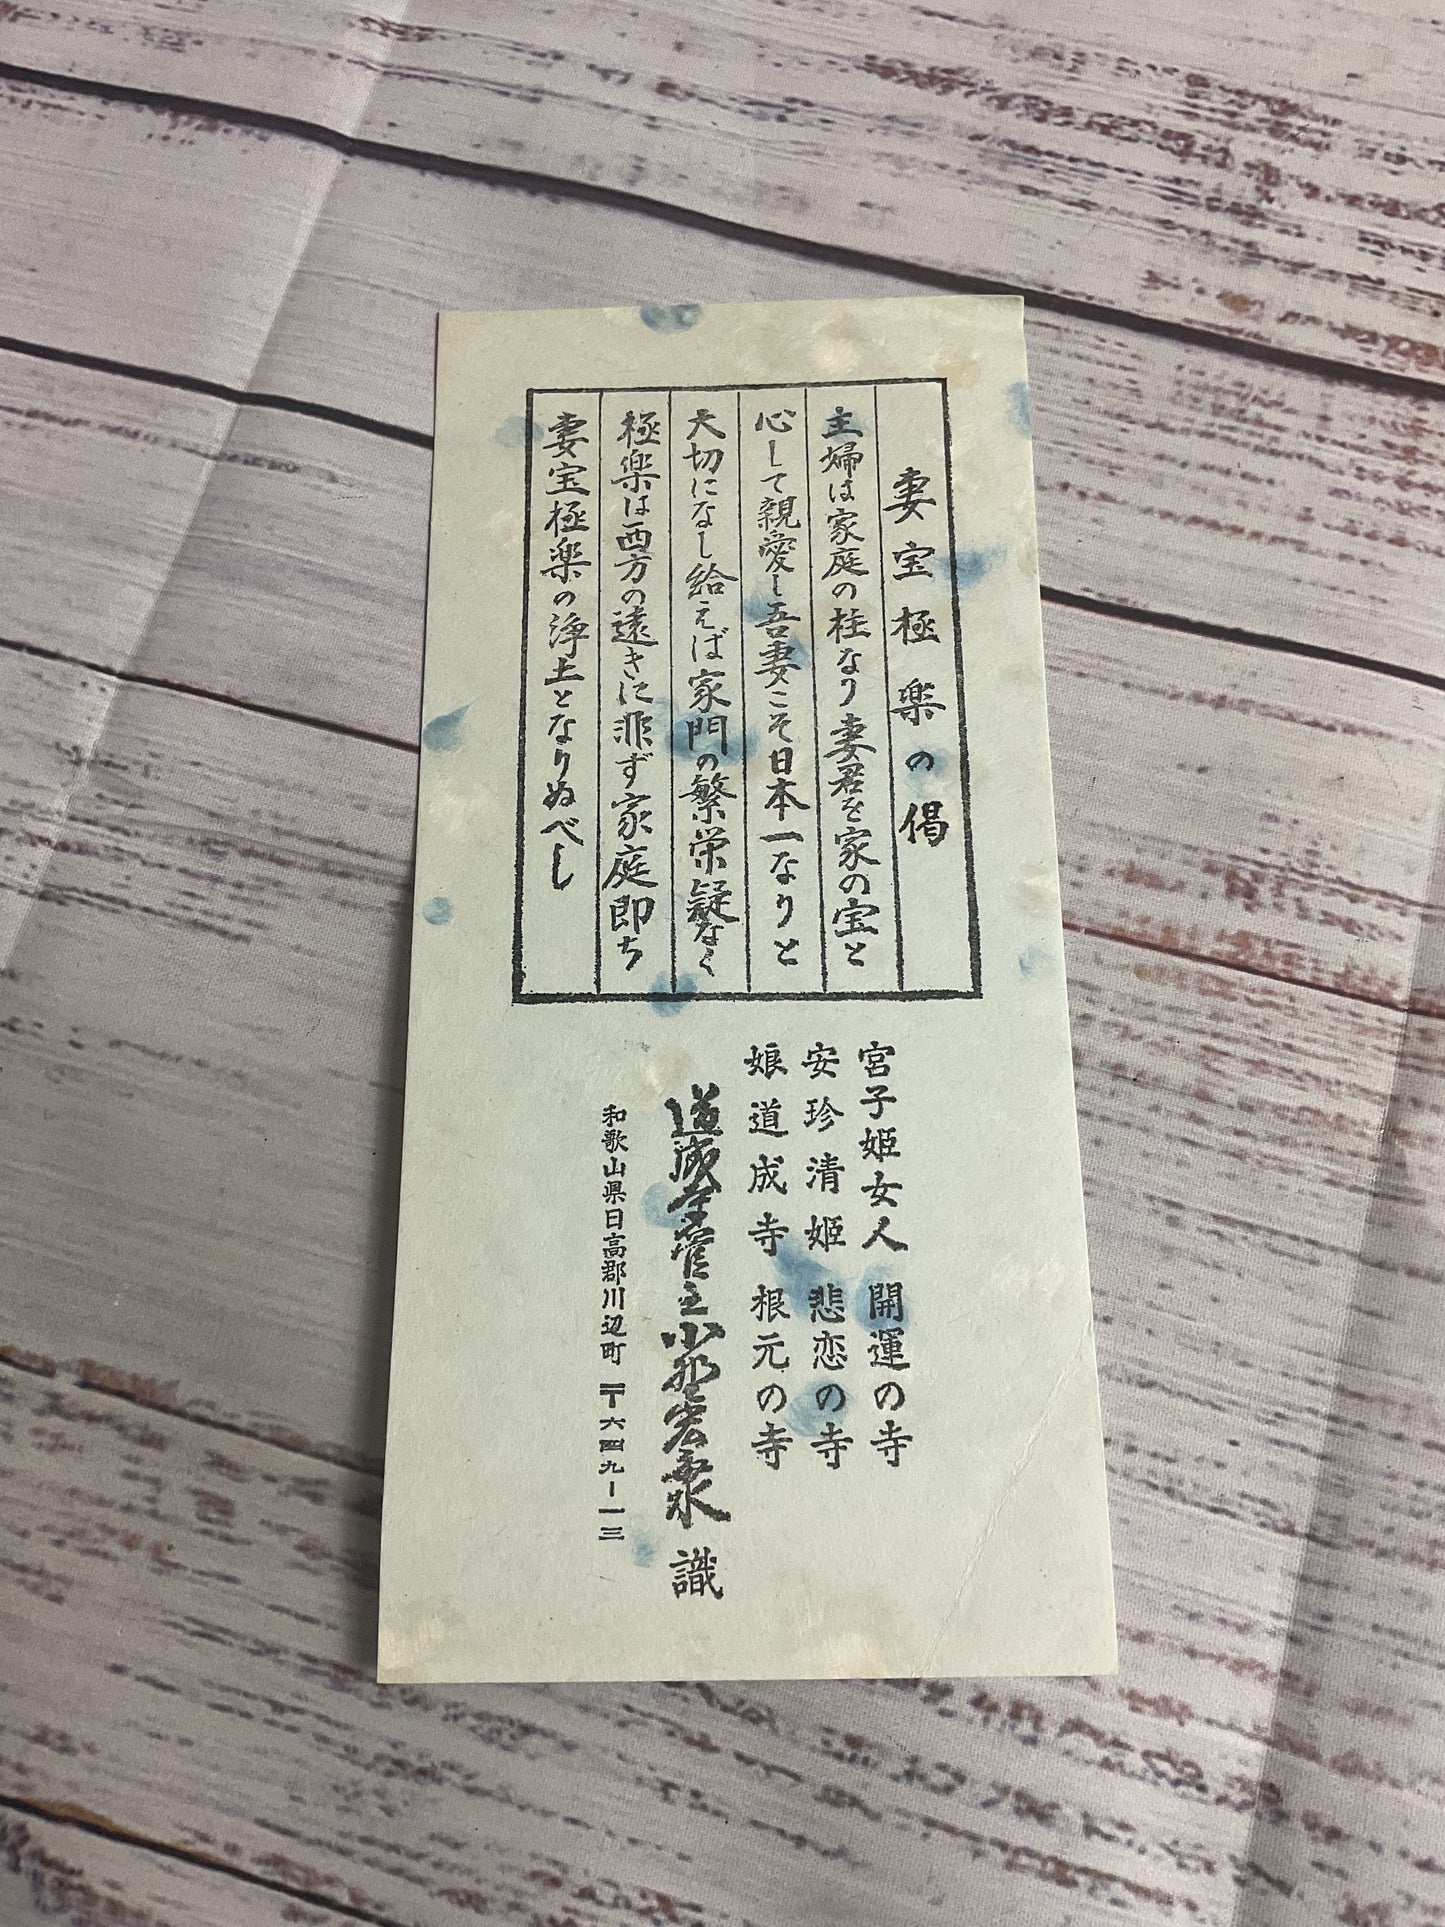 妻宝極楽の偈
主婦は家庭の柱なり妻君を家の宝と
心して親愛し吾妻こそ日本一なりと
大切になし給えば家門の繁栄疑なく
極楽は西方の遠きに非ず家庭即ち
妻宝極楽の浄土となりぬべし
宮子姫女人 開運の寺
安珍清姫 悲恋の寺
娘道成寺 根元の寺
道成寺管主小野宏海 識
和歌山県日高郡川辺町 〒六四九-一三